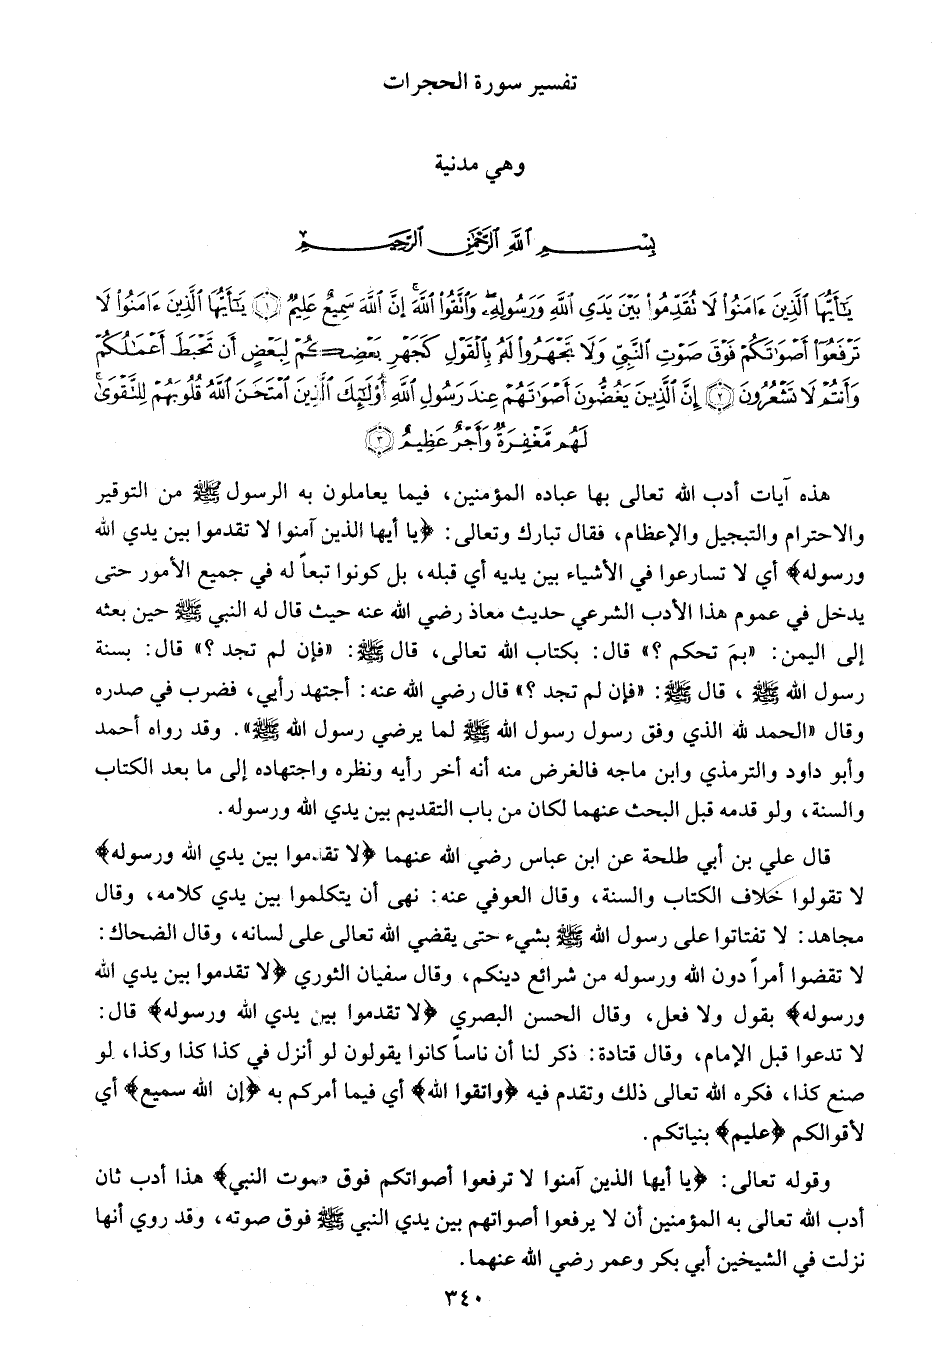 تفسير سورة الحجرات
وهي مدنية
بِسْمِ ٱللَّهِ ٱلرَّحْمَٰنِ ٱلرَّحِيمِ
يَٰٓأَيُّهَا ٱلَّذِينَ ءَامَنُوا۟ لَا تُقَدِّمُوا۟ بَيْنَ يَدَىِ ٱللَّهِ وَرَسُولِهِۦ ۖ وَٱتَّقُوا۟ ٱللَّهَ ۚ إِنَّ ٱللَّهَ سَمِيعٌ عَلِيمٌ ﴿١﴾ يَٰٓأَيُّهَا ٱلَّذِينَ ءَامَنُوا۟ لَا
تَرْفَعُوٓا۟ أَصْوَٰتَكُمْ فَوْقَ صَوْتِ ٱلنَّبِىِّ وَلَا تَجْهَرُوا۟ لَهُۥ بِٱلْقَوْلِ كَجَهْرِ بَعْضِكُمْ لِبَعْضٍ أَن تَحْبَطَ أَعْمَٰلُكُمْ
وَأَنتُمْ لَا تَشْعُرُونَ ﴿٢﴾ إِنَّ ٱلَّذِينَ يَغُضُّونَ أَصْوَٰتَهُمْ عِندَ رَسُولِ ٱللَّهِ أُو۟لَٰٓئِكَ ٱلَّذِينَ ٱمْتَحَنَ ٱللَّهُ قُلُوبَهُمْ لِلتَّقْوَىٰ ۚ
لَهُم مَّغْفِرَةٌ وَأَجْرٌ عَظِيمٌ ﴿٣﴾
هذه آيات أدب الله تعالى بها عباده المؤمنين، فيما يعاملون به الرسول ﷺ من التوقير
والاحترام والتبجيل والإعظام، فقال تبارك وتعالى: ﴿يا أيها الذين آمنوا لا تقدموا بين يدي الله
ورسوله﴾ أي لا تسارعوا في الأشياء بين يديه أي قبله، بل كونوا تبعاً له في جميع الأمور حتى
يدخل في عموم هذا الأدب الشرعي حديث معاذ رضي الله عنه حيث قال له النبي ﷺ حين بعثه
إلى اليمن: «بمَ تحكم؟» قال: بكتاب الله تعالى، قال ﷺ: «فإن لم تجد؟» قال: بسنة
رسول الله ﷺ، قال ﷺ: «فإن لم تجد؟» قال رضي الله عنه: أجتهد رأيي، فضرب في صدره
وقال «الحمد لله الذي وفق رسول رسول الله ﷺ لما يرضي رسول الله ﷺ». وقد رواه أحمد
وأبو داود والترمذي وابن ماجه فالغرض منه أنه أخر رأيه ونظره واجتهاده إلى ما بعد الكتاب
والسنة، ولو قدمه قبل البحث عنهما لكان من باب التقديم بين يدي الله ورسوله.
قال علي بن أبي طلحة عن ابن عباس رضي الله عنهما ﴿لا تقدموا بين يدي الله ورسوله﴾
لا تقولوا خلاف الكتاب والسنة، وقال العوفي عنه: نهى أن يتكلموا بين يدي كلامه، وقال
مجاهد: لا تفتاتوا على رسول الله ﷺ بشيء حتى يقضي الله تعالى على لسانه، وقال الضحاك:
لا تقضوا أمراً دون الله ورسوله من شرائع دينكم، وقال سفيان الثوري ﴿لا تقدموا بين يدي الله
ورسوله﴾ بقول ولا فعل، وقال الحسن البصري ﴿لا تقدموا بين يدي الله ورسوله﴾ قال:
لا تدعوا قبل الإمام، وقال قتادة: ذكر لنا أن ناساً كانوا يقولون لو أنزل في كذا كذا وكذا، لو
صنع كذا، فكره الله تعالى ذلك وتقدم فيه ﴿واتقوا الله﴾ أي فيما أمركم به ﴿إن الله سميع﴾ أي
لأقوالكم ﴿عليم﴾ بنياتكم.
وقوله تعالى: ﴿يا أيها الذين آمنوا لا ترفعوا أصواتكم فوق صوت النبي﴾ هذا أدب ثان
أدب الله تعالى به المؤمنين أن لا يرفعوا أصواتهم بين يدي النبي ﷺ فوق صوته، وقد روي أنها
نزلت في الشيخين أبي بكر وعمر رضي الله عنهما.
٣٤٠